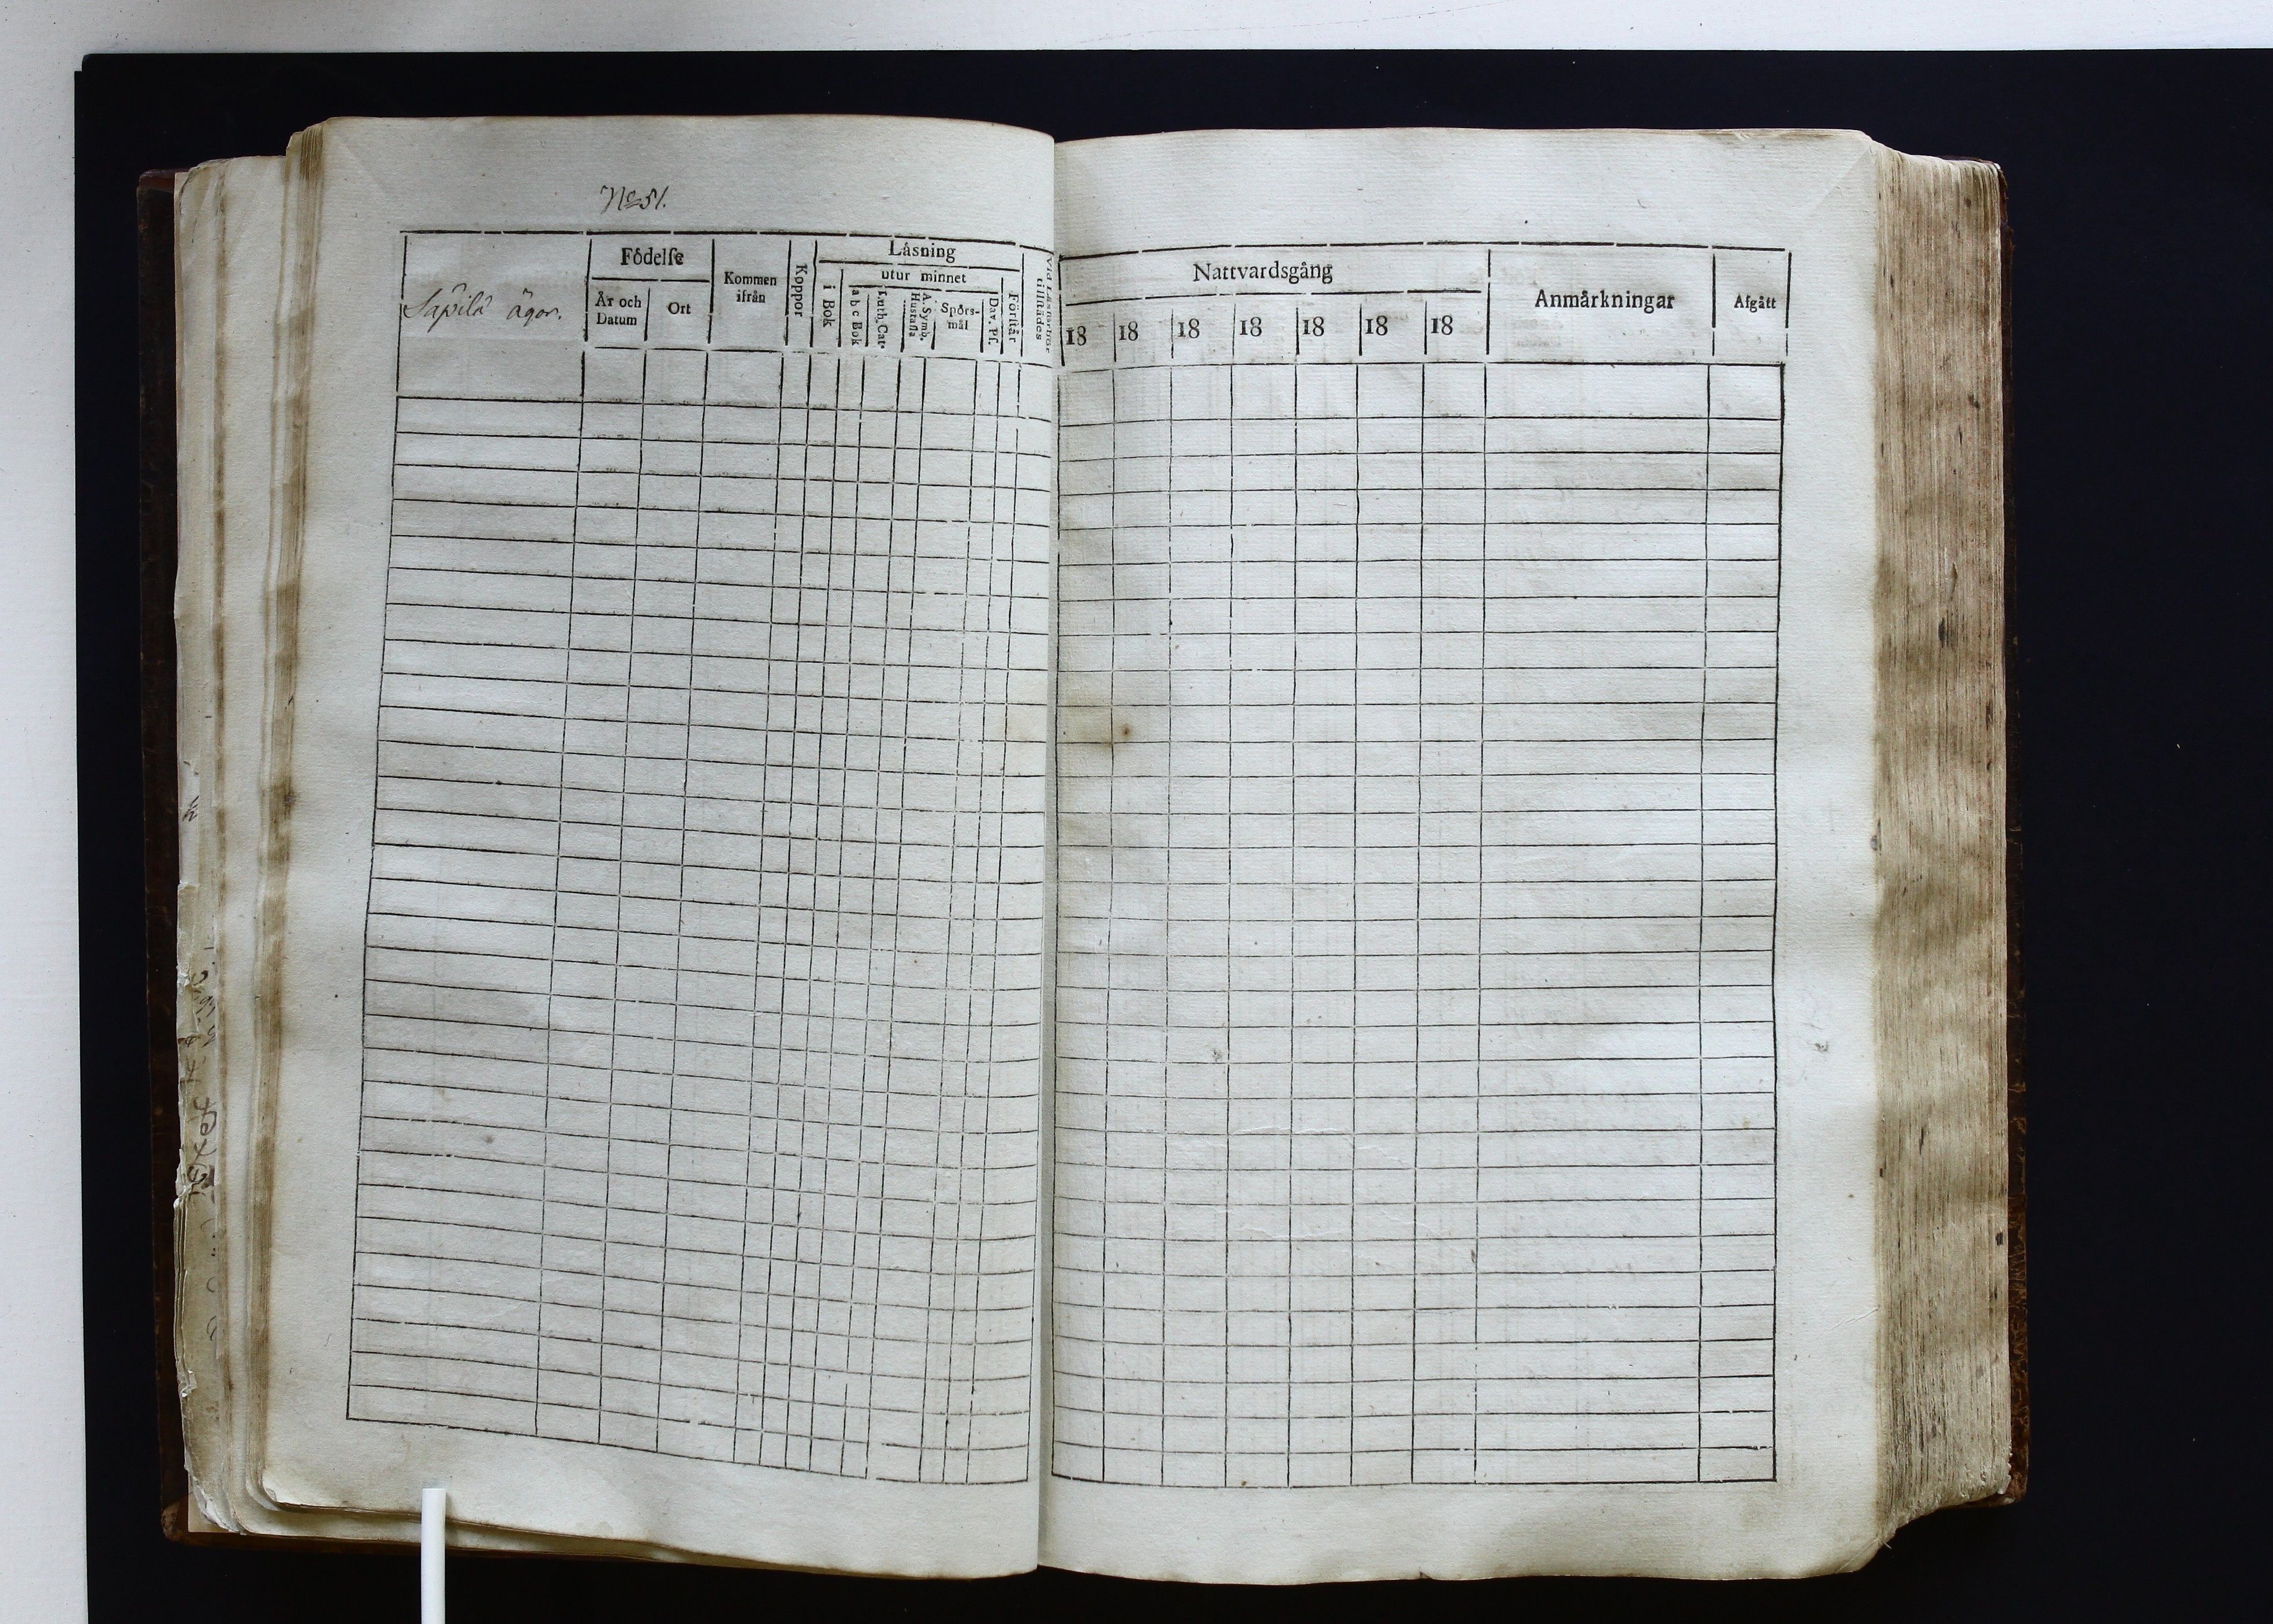 No 51.
Sapilä ägor.
Fôdelſe
År och
Datum
Ort
Kommen
ifrån
Koppor
Låsning
i Bok
utur minnet
a b c Bok
Luth. Cat.
A. Symb.
Huſtafla
Spörs-
mål
Dav. Pſ.
Förſtår
Nattvardsgång
18 18 18 18 18 18 18
Anmårkningar
Afgått